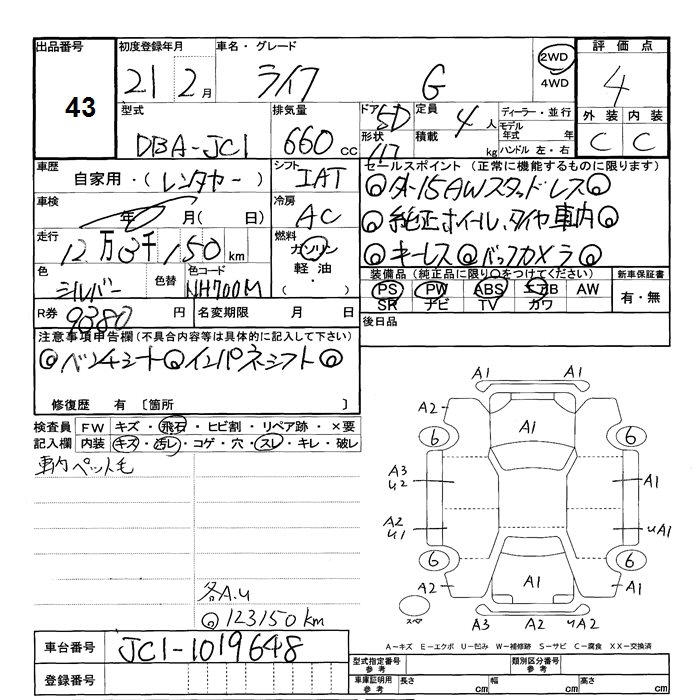 出品番号
43
初度登録年月
21 2月
車名・グレード
ライフ G
2WD
4WD
評価点
4
外装 内装
C C
型式
DBA-JC1
排気量
660 cc
ドア 5D
形状
定員 4人
積載 kg
ディーラー・並行
モデル年式 年
ハンドル 左・右
車歴
自家用・(レンタカー)
シフト
IAT
セールスポイント(正常に機能するものに限ります)
◎外15AWスタッドレス◎
◎純正ホイール、タイヤ車内◎
◎キーレス◎バックカメラ◎
車検
年 月(日)
冷房
AC
走行
12万3千150km
燃料
ガソリン
軽油・
( )
色
シルバー
色替
色コード
NH700M
装備品(純正品に限り○をつけてください)
PS PW ABS エアB AW
SR ナビ TV カワ
新車保証書
有・無
R券 9380円
名変期限 月 日
後日品
注意事項申告欄(不具合内容等は具体的に記入して下さい)
◎ベンチシート◎インパネシフト◎
修復歴 有〔箇所 〕
検査員記入欄
FW キズ・飛石・ヒビ割・リペア跡・×要
内装 キズ・汚レ・コゲ・穴・スレ・キレ・破レ
車内ペット毛
各A.u
◎123150km
A1 A1
A2 A1
6 6
A3
u2
A1
A2
u1
uA1
6 6
A2 A1 A1
スペア
A3 A2 uA2
A-キズ E-エクボ U-凹み W-補修跡 S-サビ C-腐食 XX-交換済
車台番号 JC1-1019648
登録番号
型式指定番号 参考
類別区分番号 参考
車庫証明用 参考
長さ cm 幅 cm 高さ cm